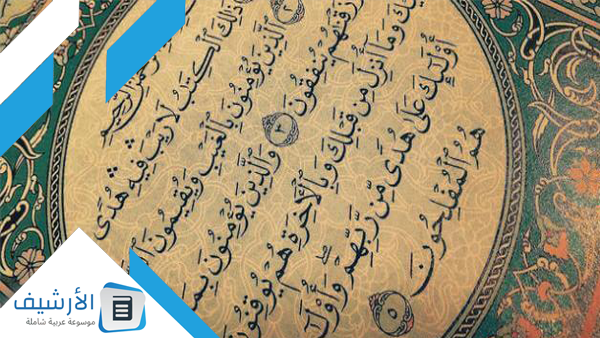 ٱلرَّحِيمِ
ذَٰلِكَ ٱلْكِتَٰبُ لَا رَيْبَ فِيهِ هُدًى
٢ ٱلَّذِينَ يُؤْمِنُونَ بِٱلْغَيْبِ وَيُقِيمُونَ
رَزَقْنَٰهُمْ يُنفِقُونَ ٣ وَٱلَّذِينَ يُؤْمِنُونَ
وَمَآ أُنزِلَ مِن قَبْلِكَ وَبِٱلْأَخِرَةِ هُمْ يُوقِنُونَ
أُو۟لَٰٓئِكَ عَلَىٰ هُدًى مِّن رَّبِّهِمْ ۖ
هُمُ ٱلْمُفْلِحُونَ ٥
الأرشيف
موسوعة عربية شاملة